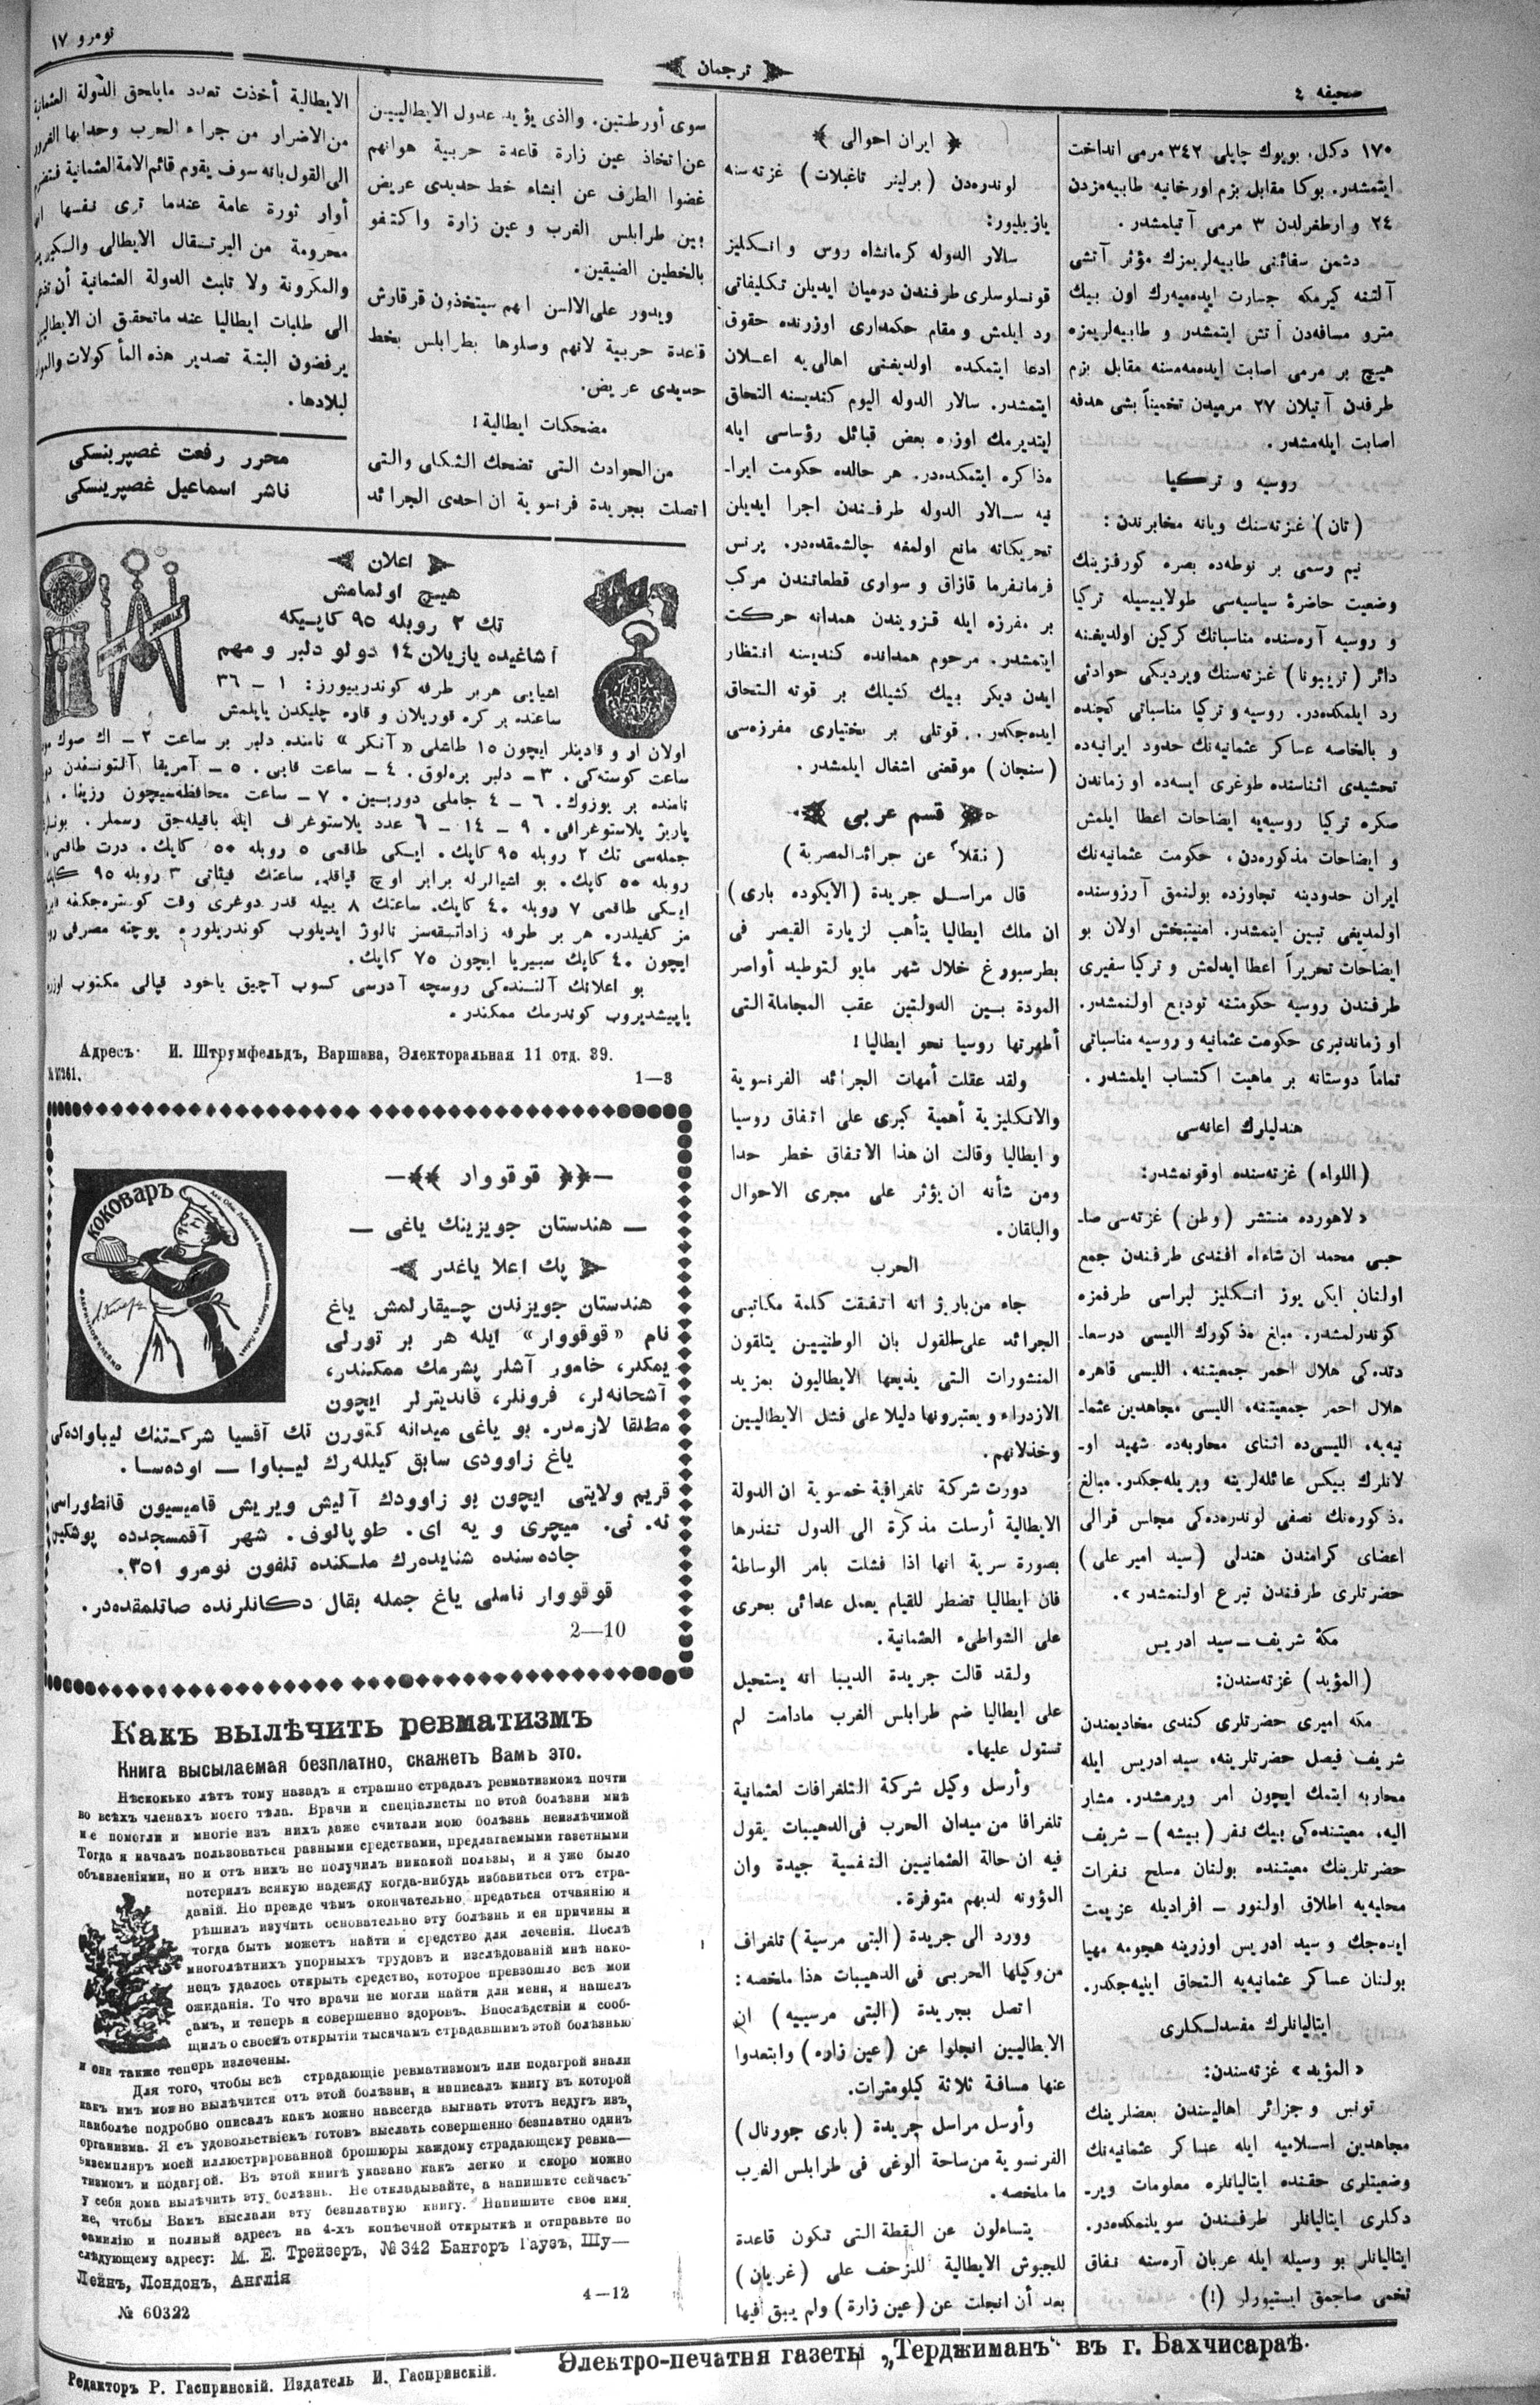 صحیفه ٤
ترجمان
نومرو ١٧
١٧٠ دكل، بویوك چاپلی ٣٤٢ مرمی انداخت
ایتمشدر. بوكا مقابل بزم اورخانیه طابیه‌مزدن
٢٤ و ارطغرلدن ٣ مرمی آتیلمشدر.
دشمن سفائنی طابیه‌لریمزك مؤثر آتشی
آلتنه كیرمكه جسارت ایده‌میه‌رك اون بیك
مترو مسافه‌دن آتش ایتمشدر و طابیه‌لریمزه
هیچ بر مرمی اصابت ایده‌مه‌مسنه مقابل بزم
طرفدن آتیلان ٢٧ مرمیدن تخمیناً بشی هدفه
اصابت ایله‌مشدر.
روسیه و تركیا
(تان) غزته‌سنك ویانه مخابرندن:
نیم رسمی بر نوطه‌ده بصره كورفزینك
وضعیت حاضرهٔ سیاسیه‌سی طولاییسیله تركیا
و روسیه آره‌سنده مناسباتك كركین اولدیغنه
دائر (تریبونا) غزته‌سنك ویردیكی حوادثی
رد ایلمكده‌در. روسیه و تركیا مناسباتی كچنده
و بالخاصه عساكر عثمانیه‌نك حدود ایرانیه‌ده
تحشیدی اثناسنده طوغری ایسه‌ده او زماندن
صكره تركیا روسیه‌یه ایضاحات اعطا ایلمش
و ایضاحات مذكوره‌دن، حكومت عثمانیه‌نك
ایران حدودینه تجاوزده بولنمق آرزوسنده
اولمدیغی تبین ایتمشدر. امنیتبخش اولان بو
ایضاحات تحریراً اعطا ایدلمش و تركیا سفیری
طرفندن روسیه حكومتنه تودیع اولنمشدر.
او زماندنبری حكومت عثمانیه و روسیه مناسباتی
تماماً دوستانه بر ماهیت اكتساب ایلمشدر.
هندلیلرك اعانه‌سی
(اللواء) غزته‌سنده اوقونمشدر:
« لاهورده منتشر (وطن) غزته‌سی صا-
حبی محمد ان شاءاه افندی طرفندن جمع
اولنان ایكی یوز انكلیز لیراسی طرفمزه
كوندرلمشدر. مبلغ مذكورك اللیسی درسعا-
دتده‌كی هلال احمر جمعیتنه، اللیسی قاهره
هلال احمر جمعیتنه، اللیسی مجاهدین عثما-
نیه‌یه، اللیسی‌ده اثنای محاربه‌ده شهید او-
لانلرك بیكس عائله‌لرینه ویریله‌جكدر. مبالغ
مذكوره‌نك نصفی لوندره‌ده‌كی مجلس قرالی
اعضای كرامندن هندلی (سید امیر علی)
حضرتلری طرفندن تبرع اولنمشدر».
مكهٔ شریف – سید ادریس
(المؤید) غزته‌سندن:
مكه امیری حضرتلری كندی مخادیمندن
شریف فیصل حضرتلرینه، سید ادریس ایله
محاربه ایتمك ایچون امر ویرمشدر. مشار
الیه، معیتنده‌كی بیك نفر (بیشه) – شریف
حضرتلرینك معیتنده بولنان مسلح نفرات
محلیه‌یه اطلاق اولنور – افرادیله عزیمت
ایده‌جك و سید ادریس اوزرینه هجومه مهیا
بولنان عساكر عثمانیه‌یه التحاق ایتیه‌جكدر.
ایتالیانلرك مفسدلكلری
« المؤید » غزته‌سندن:
تونس و جزائر اهالیسندن بعضلرینك
مجاهدین اسلامیه ایله عساكر عثمانیه‌نك
وضعیتلری حقنده ایتالیانلره معلومات ویر-
دكلری ایتالیانلر طرفندن سویلنمكده‌در.
ایتالیانلر بو وسیله ایله عربان آره‌سنه نفاق
تخمی صاچمق ایستیورلر (!)
ایران احوالی
لوندره‌دن (برلینر تاغبلات) غزته‌سنه
یازیلیور:
سالار الدوله كرمانشاه روس و انكلیز
قونسلوسلری طرفندن درمیان ایدیلن تكلیفاتی
رد ایلمش و مقام حكمداری اوزرنده حقوق
ادعا ایتمكده اولدیغنی اهالی‌یه اعلان
ایتمشدر. سالار الدوله الیوم كندیسنه التحاق
ایتدیرمك اوزره بعض قبائل رؤساسی ایله
مذاكره ایتمكده‌در. هر حالده حكومت ایرا-
نیه سالار الدوله طرفندن اجرا ایدیلن
تحریكاته مانع اولمغه چالشمقده‌در. پرنس
فرمانفرما قازاق و سواری قطعاتندن مركب
بر مفرزه ایله قزویندن همدانه حركت
ایتمشدر. مرحوم همدانده كندیسنه انتظار
ایدن دیكر بیك كشیلك بر قوته التحاق
ایده‌جكدر.. قوتلی بر بختیاری مفرزه‌سی
(سنجان) موقعنی اشغال ایلمشدر.
قسم عربی
(نقلاً عن جرائد المصریة)
قال مراسل جریدة (الایكوده باری)
ان ملك ایطالیا یتأهب لزیارة القیصر فی
بطرسبورغ خلال شهر مایو لتوطید أواصر
المودة بین الدولتین عقب المجاملة التی
أظهرتها روسیا نحو ایطالیا!
ولقد عقلت أمهات الجرائد الفرنسویة
والانكلیزیة أهمیة كبری علی اتفاق روسیا
و ایطالیا وقالت ان هذا الاتفاق خطر جدا
ومن شأنه ان یؤثر علی مجری الاحوال
والبلقان.
الحرب
جاء من باریز انه اتفقت كلمة مكاتبی
الجرائد علی القول بان الوطنیین یتلقون
المنشورات التی یذیعها الایطالیون بمزید
الازدراء و یعتبرونها دلیلا علی فشل الایطالیین
وخذلانهم.
دورت شركة تلغرافیة خصوصیة ان الدولة
الایطالیة أرسلت مذكرة الی الدول تنذرها
بصورة سریة انها اذا فشلت بامر الوساطة
فان ایطالیا تضطر للقیام بعمل عدائی بحری
علی الشواطیء العثمانیة.
ولقد قالت جریدة الدیبا انه یستحیل
علی ایطالیا ضم طرابلس الغرب مادامت لم
تستول علیها.
وأرسل وكیل شركة التلغرافات لعثمانیة
تلغرافا من میدان الحرب فی الدهیبات یقول
فیه ان حالة العثمانیین النفسیة جیدة وان
المؤونه لدیهم متوفرة.
وورد الی جریدة (البتی مرسیة) تلغراف
من وكیلها الحربی فی الدهیبات هذا ملخصه:
اتصل بجریدة (البتی مرسییه) ان
الایطالیین انجلوا عن (عین زاره) وابتعدوا
عنها مسافة ثلاثة كیلومترات.
وأرسل مراسل جریدة (باری جورنال)
الفرنسویة من ساحة الوغی فی طرابلس الغرب
ما ملخصه.
یتساءلون عن النقطة التی تكون قاعدة
للجیوش الایطالیة للزحف علی (غریان)
بعد أن انجلت عن (عین زارة) ولم یبق فیها
سوی أورطتین. والذی یؤید عدول الایطالیین
عن اتخاذ عین زارة قاعدة حربیة هوانهم
غضوا الطرف عن انشاء خط حدیدی عریض
بین طرابلس الغرب و عین زارة واكتفو
بالخطین الضیقین.
ویدور علی الالسن انهم سیتخذون قرقارش
قاعدة حربیة لانهم وصلوها بطرابلس بخط
حدیدی عریض.
مضحكات ایطالیة!
من الحوادث التی تضحك الشكلی والتی
اتصلت بجریدة فرنسویة ان احدی الجرائد
الایطالیة أخذت تعدد مایلحق الدولة العثمانیة
من الاضرار من جراء الحرب وحدابها الغرور
الی القول بانه سوف یقوم قائم الامة العثمانیة فتضرم
أوار ثورة عامة عندما تری نفسها
محرومة من البرتقال الایطالی والسكیر
والمكرونة ولا تلبث الدولة العثمانیة أن تذعن
الی طلبات ایطالیا عند ماتحقق ان الایطالیین
یرفضون البتة تصدیر هذه المأكولات
لبلادها.
محرر رفعت غصپرینسكی
ناشر اسماعیل غصپرینسكی
اعلان
هیچ اولمامش
تك ٢ روبله ٩٥ كاپیكه
آشاغیده یازیلان ١٤ دولو دلبر و مهم
اشیایی هربر طرفه كوندریپورز: ١ – ٣٦
ساعتده بر كره قوریلان و قاره چلیكدن یاپلمش
اولان ار و قادینلر ایچون ١٥ طاشلی «آنكر» نامنده دلبر بر ساعت ٢ – اك صوك
ساعت كوستەكی. ٣ – دلبر بره‌لوق. ٤ – ساعت قابی. ٥ – آمریقا آلتونندن
نامنده بر یوزوك. ٦ – ٤ جاملی دوربین. ٧ – ساعت محافظه‌سیچون رزینا.
پاریژ پلاستوغرافی. ٩ – ١٤ – ٦ عدد پلاستوغراف ایله باقیله‌جق رسملر.
جمله‌سی تك ٢ روبله ٩٥ كاپك. ایكی طاقمی ٥ روبله ٥٠ كاپك. درت طاقمی
روبله ٥٠ كاپك. بو اشیالرله برابر اوچ قپاقلی ساعتك فیئاتی ٣ روبله ٩٥
ایكی طاقمی ٧ روبله ٤٠ كاپك. ساعتك ٨ ییله قدر دوغری وقت كوستره‌جكنه
مز كفیلدر. هر بر طرفه زاداتقه‌سز نالوژ ایدیلوب كوندریلور. پوچته مصرفی
ایچون ٤٠ كاپك سبیریا ایچون ٧٥ كاپك.
بو اعلانك آلتنده‌كی روسچه آدرسی كسوب آچیق یاخود قپالی مكتوب اوزرینه
یاپیشدیروب كوندرمك ممكندر.
Адресъ: И. Штрумфельдъ, Варшава, Электоральная 11 отд. 39.
1—3
قوقووار
– هندستان جویزینك یاغی –
پك اعلا یاغدر
КОКОВАРЪ
هندستان جویزندن چیقارلمش یاغ
نام «قوقووار» ایله هر بر تورلی
یمكلر، خامور آشلر پشرمك ممكندر،
آشخانه‌لر، فرونلر، قاندیترلر ایچون
مطلقا لازمدر. بو یاغی میدانه كتورن تك آقسیا شركتنك لیباواده‌كی
یاغ زاوودی سابق كیللەرك لیباوا – اوده‌سا.
قریم ولایتی ایچون بو زاوودك آلیش ویریش قامیسیون قانطوراسی
نه. ئی. میچری و یه ای. طوپالوف. شهر آقمسجدده پوشكین
جاده‌سنده شنایدەرك ملكنده تلفون نومرو ٣٥١.
قوقووار ناملی یاغ جمله بقال دكانلرنده صاتلمقده‌در.
2—10
Какъ вылѣчить ревматизмъ
Книга высылаемая безплатно, скажетъ Вамъ это.
Нѣсколько лѣтъ тому назадъ я страшно страдалъ ревматизмомъ почти
во всѣхъ членахъ моего тѣла. Врачи и спеціалисты по этой болѣзни мнѣ
не помогли и многіе изъ нихъ даже считали мою болѣзнь неизлѣчимой
Тогда я началъ пользоваться разными средствами, предлагаемыми газетными
объявленіями, но и отъ нихъ не получилъ никакой пользы, и я уже было
потерялъ всякую надежду когда-нибудь избавиться отъ стра-
даній. Но прежде чѣмъ окончательно предаться отчаянію я
рѣшилъ изучить основательно эту болѣзнь и ея причины и
тогда быть можетъ найти и средство для леченія. Послѣ
многолѣтнихъ упорныхъ трудовъ и изслѣдованій мнѣ нако-
нецъ удалось открыть средство, которое превзошло всѣ мои
ожиданія. То что врачи не могли найти для меня, я нашелъ
самъ, и теперь я совершенно здоровъ. Впослѣдствіи я сооб-
щилъ о своемъ открытіи тысячамъ страдавшимъ этой болѣзнью
и они также теперь излечены.
Для того, чтобы всѣ страдающіе ревматизмомъ или подагрой знали
какъ имъ можно вылѣчится отъ этой болѣзни, я написалъ книгу въ которой
наиболѣе подробно описалъ какъ можно навсегда выгнать этотъ недугъ изъ
организма. Я съ удовольствіемъ готовъ выслать совершенно безплатно одинъ
экземпляръ моей иллюстрированной брошюры каждому страдающему ревма—
тизмомъ и подагрой. Въ этой книгѣ указано какъ легко и скоро можно
у себя дома вылѣчить эту болѣзнь. Не откладывайте, а напишите сейчасъ
же, чтобы Вамъ выслали эту безплатную книгу. Напишите свое имя
фамилію и полный адресъ на 4-хъ копѣечной открыткѣ и отправьте по
слѣдующему адресу: М. Е. Трейзеръ, № 342 Бангоръ Гаузъ, Шу—
Лейнъ, Лондонъ, Англія
4—12
№ 60322
Электро-печатня газеты „Терджиманъ“ въ г. Бахчисараѣ.
Редакторъ Р. Гаспринскій. Издатель И. Гаспринскій.